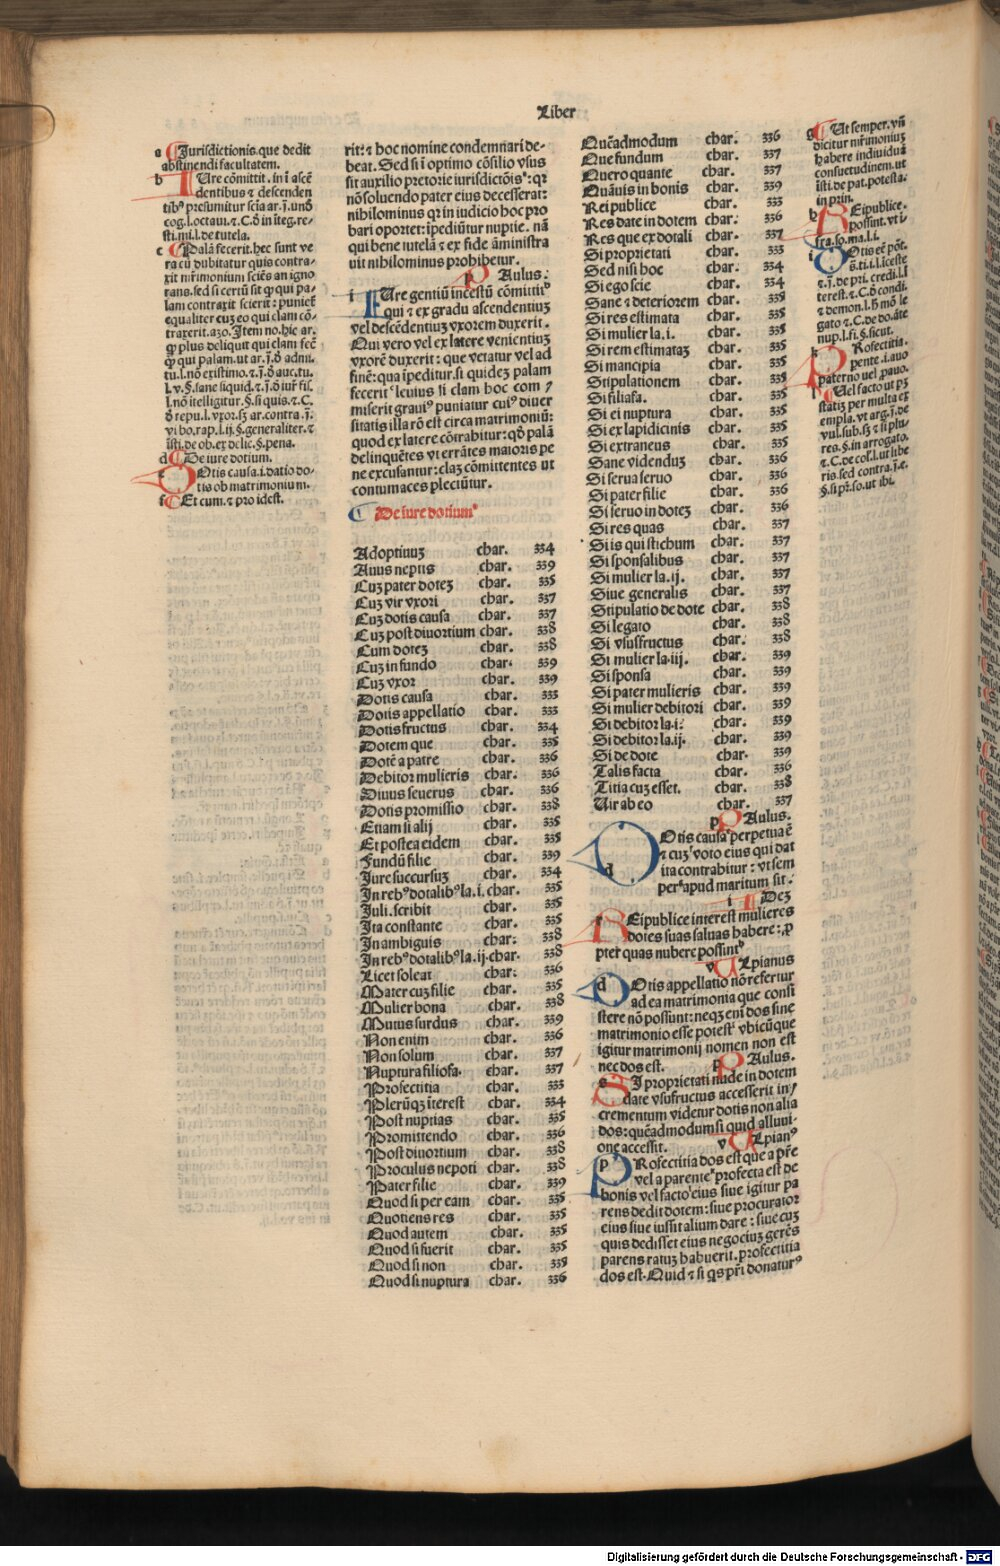 Liber
a Jurisdictionis.que dedit
abstinendi facultatem.
b Iure cōmittit.in ī ascē
dentibus ⁊ descenden
tibꝰ presumitur scīa ar.ī.und̄
cog.l.octaui.⁊.C.ð in īteg.re-
sti.mi.l.de tutela.
c Palā fecerit.hec sunt ve
ra cū dubitatur quis contra-
xit mr̄imonium sciēs an igno
rans.sed si certū sit ꝙ qui pa-
lam contraxit scierit: punief
equaliter cuȝ eo qui clam cō-
traxerit.azo.Item no.hic ar.
ꝙ plus deliquit qui clam fec̄
ꝙ qui palam.ut ar.ī.ð admi.
tu.l.nō existimo.⁊.ī.ð auc.tu.
l.v.§.sane si quid.⁊.ī.ð iur̄ fis.
l.nō itelligitur.§.si quis.⁊.C.
ð repu.l.vxor.sȝ ar.contra.ī.
vi bo.rap.l.ij.§.generaliter.⁊
īsti.de ob.ex delic.§.pena.
d De iure dotium.
e Dotis causa.i.datio do-
tis ob matrimonium.
f Et cum.⁊ pro idest.
rit: ⁊ hoc nomine condemnari de-
beat. Sed si ī optimo cōsilio vsus
sit auxilio pretorie iurisdictōisᵃ: qꝛ
nō soluendo pater eius decesserat:
nihilominus qꝛ in iudicio hoc pro
bari oportet: īpediūtur nuptie. nā
qui bene tutelā ⁊ ex fide āministra
uit nihilominus prohibetur.
p Paulus.
i Iure gentiū incestū cōmittitᵇ
qui ⁊ ex gradu ascendentiuȝ
vel descēdentiuȝ vxorem duxerit.
Qui vero vel ex latere venientiuȝ
vxorē duxerit: que vetatur vel ad
finē: qua īpeditur. si quideȝ palam
fecerit ᶜ leuius si clam hoc com ⸗
miserit grauiꝰ puniatur cuiꝰ diuer
sitatis illa rō est circa matrimoniū:
quod ex latere cōtrahitur: qð palā
delinquētes vt errātes maioris pe
ne excusantur: claȝ cōmittentes ut
contumaces plectiūtur.
De iure dotiumᵈ
Adoptiuuȝ char. 334
Auus neptis char. 339
Cuȝ pater doteȝ char. 335
Cuȝ vir vxori char. 337
Cuȝ dotis causa char. 337
Cuȝ post diuortium char. 338
Cum doteȝ char. 338
Cuȝ in fundo char. 339
Cuȝ vxor char. 339
Dotis causa char. 333
Dotis appellatio char. 333
Dotis fructus char. 334
Dotem que char. 335
Dotē a patre char. 336
Debitor mulieris char. 336
Diuus seuerus char. 336
Dotis promissio char. 338
Etiam si alij char. 335
Et postea eidem char. 335
Fundū filie char. 339
Iure succursuȝ char. 334
In rebꝰ dotalibꝰ la.i. char. 335
Juli. scribit char. 335
Ita constante char. 335
In ambiguis char. 338
In rebꝰ dotalibꝰ la.ij. char. 338
Licet soleat char. 336
Mater cuȝ filie char. 335
Mulier bona char. 338
Mutus surdus char. 339
Non enim char. 336
Non solum char. 337
Nuptura filiofa. char. 337
Profectitia char. 333
Plerūqȝ īterest char. 334
Post nuptias char. 335
Promittendo char. 336
Post diuortium char. 338
Proculus nepoti char. 338
Pater filie char. 339
Quod si per eam char. 335
Quotiens res char. 335
Quod autem char. 335
Quod si fuerit char. 335
Quod si non char. 335
Quod si nuptura char. 336
Quēadmodum char. 336
Que fundum char. 337
Quero quante char. 337
Quāuis in bonis char. 339
Rei publice char. 333
Res date in dotem char. 336
Res que ex dotali char. 337
Si proprietati char. 333
Sed nisi hoc char. 334
Si ego seie char. 334
Sane ⁊ deteriorem char. 335
Si res estimata char. 335
Si mulier la.i. char. 335
Si rem estimataȝ char. 335
Si mancipia char. 335
Stipulationem char. 335
Si filiafa. char. 335
Si ei nuptura char. 335
Si ex lapidicinis char. 335
Si extraneus char. 335
Sane videnduȝ char. 336
Si serua seruo char. 336
Si pater filie char. 336
Si seruo in doteȝ char. 336
Si res quas char. 337
Si is qui stichum char. 337
Si sponsalibus char. 337
Si mulier la.ij. char. 337
Siue generalis char. 337
Stipulatio de dote char. 338
Si legato char. 338
Si vsusfructus char. 338
Si mulier la.iij. char. 339
Si sponsa char. 339
Si pater mulieris char. 339
Si mulier debitori char. 339
Si debitor la.i. char. 339
Si debitor la.ij. char. 339
Si de dote char. 339
Talis facta char. 336
Titia cuȝ esset. char. 338
Uir ab eo char. 337
p Paulus.
d Dotis causaᵉ perpetua ē
⁊ cuȝᶠ voto eius qui dat
ita contrahitur: vt sem
perᵍ apud maritum sit.
i Ideȝ
r Reipublice interest mulieres
dotes suas saluas habere: ꝓ
pter quas nubere possintʰ
v Ulpianus
d Dotis appellatio nō refertur
ad ea matrimonia que consi
stere nō possunt: neqȝ eni dos sine
matrimonio esse potestⁱ vbicūque
igitur matrimonij nomen non est
nec dos est. p Paulus.
s Si proprietati nude in dotem
date vsufructus accesserit in⸗
crementum videtur dotis non alia
dos: quēadmodum si quid alluui-
one accessit. v Ulpianꝰ
p Profectitia dos est que a pr̄e
vel a parenteᵏ profecta est de
bonis vel factoˡ eius siue igitur pa
rens dedit dotem: siue procurator
eius siue iussit alium dare: siue cuȝ
quis dedisset eius negociuȝ gerēs
parens ratuȝ habuerit. profectitia
dos est. Quid ⁊ si qs pr̄i donaturꝰ
g Ut semper. vn̄
dicitur mr̄imoniuȝ
habere indiuiduā
consuetudinem. ut
īsti.de pat.potesta.
in prin.
h Reipublice.
possint. vt ī
fra.so.ma.l.i.
i Dotis eē pōt.
s.ti.i.l.īceste
⁊.ī.de pri.credi.l.ī
terest.⁊.C.ð condi.
⁊ demon.l.h̄ mō le
gato ⁊.C.de do.āte
nup.l.fi.§.sicut.
k Profectitia.
pente .i.auo
paterno uel ꝓauo.
l Uel facto ut pȝ
statiȝ per multa ex
empla. vt arg.ī.de
vul.sub.sȝ ⁊ si plu⸗
res.§.in arrogato.
⁊.C.de col.l.ut libe
ris.sed contra.ī.e.
§.si pr̄.so.ut ibi.
Digitalisierung gefördert durch die Deutsche Forschungsgemeinschaft - DFG